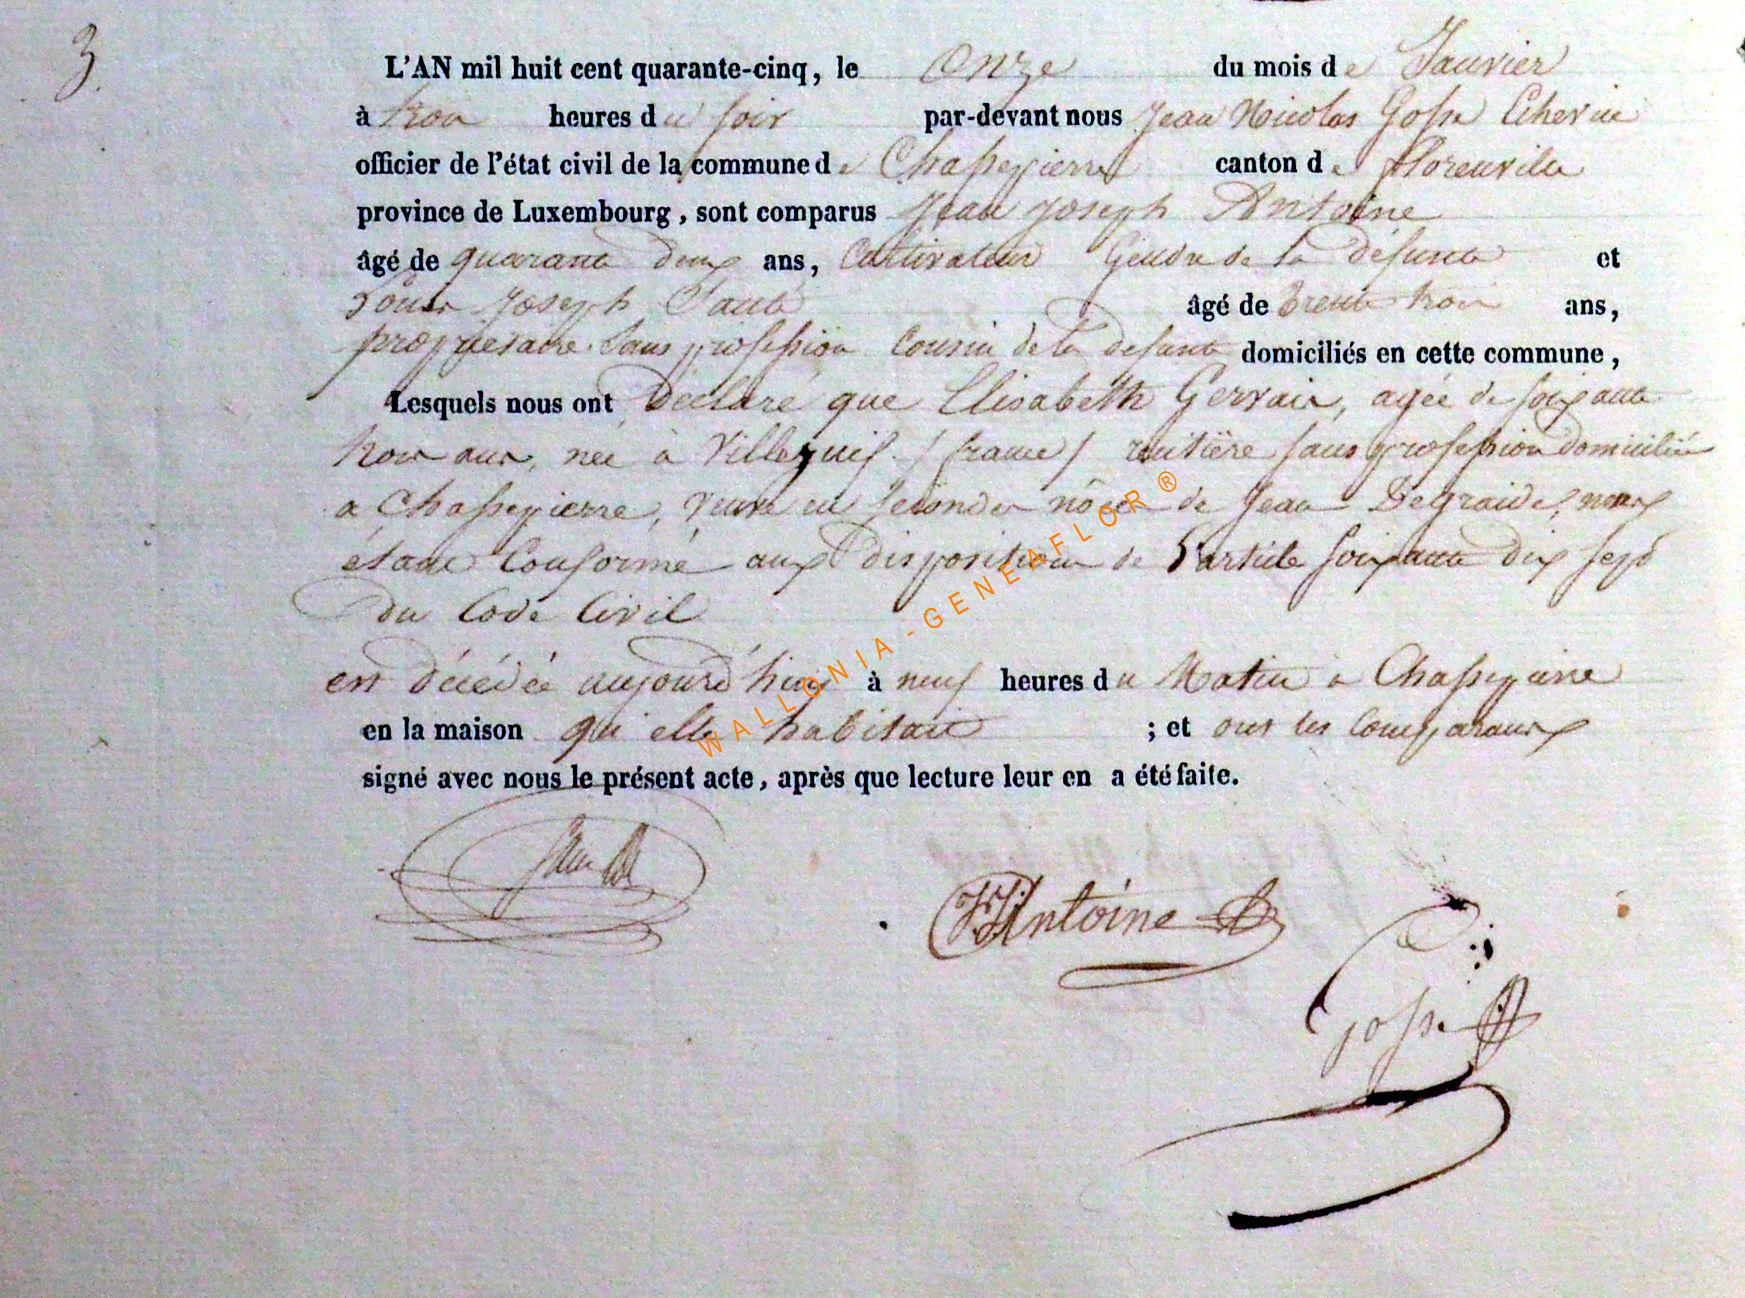 3.
L'AN mil huit cent quarante-cinq, le onze du mois de Janvier
à trois heures du soir par-devant nous Jean Nicolas Gosse Echevin
officier de l'état civil de la commune de Chassepierre canton de florenville
province de Luxembourg, sont comparus Jean Joseph Antoine
âgé de quarante deux ans, Cultivateur Gendre de la défunte et
Louis Joseph âgé de trente trois ans,
propriétaire sans profession Cousin de la defunte domiciliés en cette commune,
Lesquels nous ont déclaré que Elisabeth Gervais, agée de soixante
trois ans, née à (france) rentière sans profession domiciliée
a Chassepierre, veuve en secondes nôces de Jean Degraide, nous
étant Conformé aux dispositions de l'article soixante dix sept
du Code Civil
est décédée aujourd'huy à neuf heures du Matin a Chassepierre
en la maison qu'elle habitait ; et ont les Comparants
signé avec nous le présent acte, après que lecture leur en a été faite.
JJAntoine
Gosse
WALLONIA-GENEAFLOR®